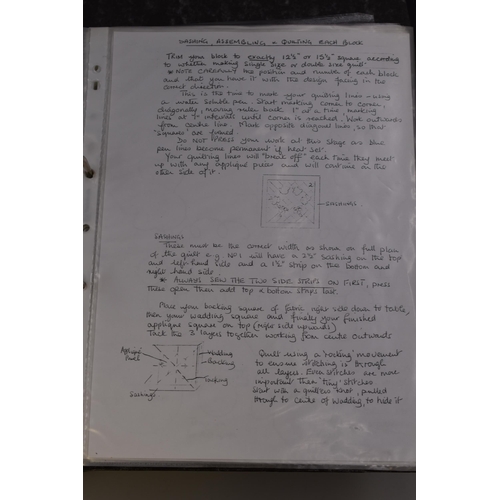 SASHING, ASSEMBLING & QUILTING EACH BLOCK
Trim your block to exactly 12½" or 15½" square according
to whether making single size or double size quilt.
* NOTE CAREFULLY the position and number of each block
and that you have it with the design facing in the
correct direction.
This is the time to mark your quilting lines - using
a water soluble pen. Start marking corner to corner,
diagonally, moving ruler back 1" at a time marking
lines at 1" intervals until corner is reached. Work outwards
from centre line. Mark opposite diagonal lines, so that
"squares" are formed.
Do NOT PRESS your work at this stage as blue
pen lines become permanent if heat set.
Your quilting lines will "break off" each time they meet
up with any applique pieces and will continue on the
other side of it.
21
SASHINGS
SASHINGS
These must be the correct width as shown on full plan
of the quilt e.g. No 1 will have a 2½" sashing on the top
and left hand side and a 1½" strip on the bottom and
right hand side.
* ALWAYS SEW THE TWO SIDE STRIPS ON FIRST, press
these open then add top & bottom strips last.
Place your backing square of fabric right side down to table,
then your wadding square and finally your finished
applique square on top (right side upwards)
Tack the 3 layers together working from centre outwards
Applique
Block
Wadding
Backing
Tacking
Sashings
Quilt using a rocking movement
to ensure stitching is through
all layers. Even stitches are more
important than tiny stitches
Start with a quilters knot, pulled
through to centre of wadding to hide it